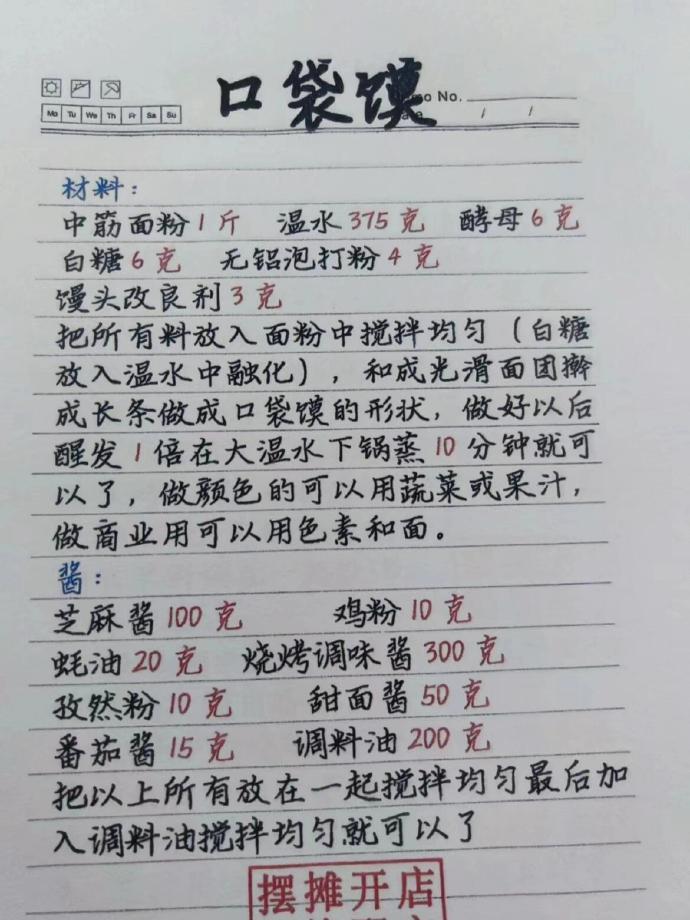 口袋馍
Memo No.
Mo Tu We Th Fr Sa Su
/ /
材料：
中筋面粉1斤 温水375克 酵母6克
白糖6克 无铝泡打粉4克
馒头改良剂3克
把所有料放入面粉中搅拌均匀（白糖
放入温水中融化），和成光滑面团擀
成长条做成口袋馍的形状，做好以后
醒发1倍在大温水下锅蒸10分钟就可
以了，做颜色的可以用蔬菜或果汁，
做商业用可以用色素和面。
酱：
芝麻酱100克 鸡粉10克
蚝油20克 烧烤调味酱300克
孜然粉10克 甜面酱50克
番茄酱15克 调料油200克
把以上所有放在一起搅拌均匀最后加
入调料油搅拌均匀就可以了
摆摊开店